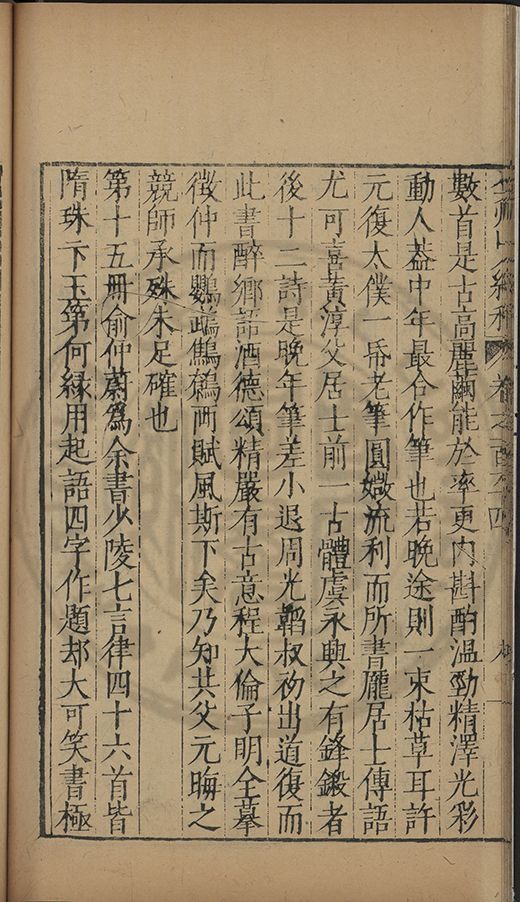 數首是古高麗繭能於率更内斟酌溫勁精澤光彩
動人葢中年最合作筆也若晚途則一束枯草耳許
元復太僕一帋老筆圓媺流利而所書龐居士傳語
尤可喜黃淳父居士前一古體虞永興之有鋒鎩者
後十二詩是晚年筆差小退周光韜叔礽出道復而
此書醉鄉語酒德頌精嚴有古意程大倫子明全摹
徴仲而鸚鵡鷦鷯兩賦風斯下矣乃知共父元晦之
競師承殊未足確也
第十五冊俞仲蔚爲余書少陵七言律四十六首皆
隋珠卞玉第何縁用起語四字作題却大可笑書極